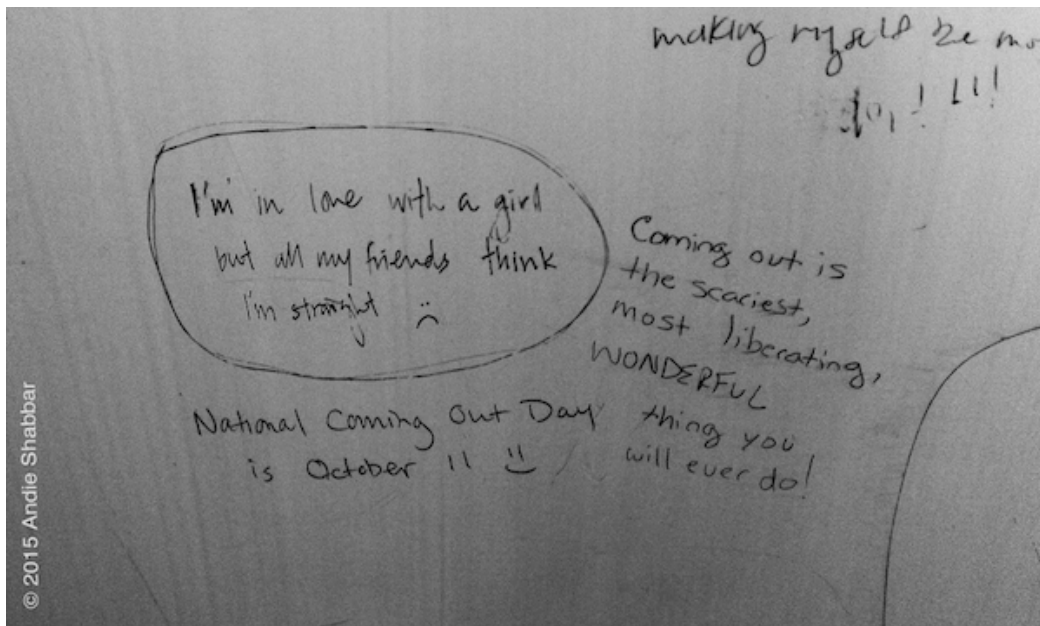 making myself be
I'm in love with a girl
but all my friends think
I'm straight :(
Coming out is
the scariest,
most liberating,
WONDERFUL
thing you
will ever do!
National Coming Out Day
is October 11 :)
© 2015 Andie Shabbar